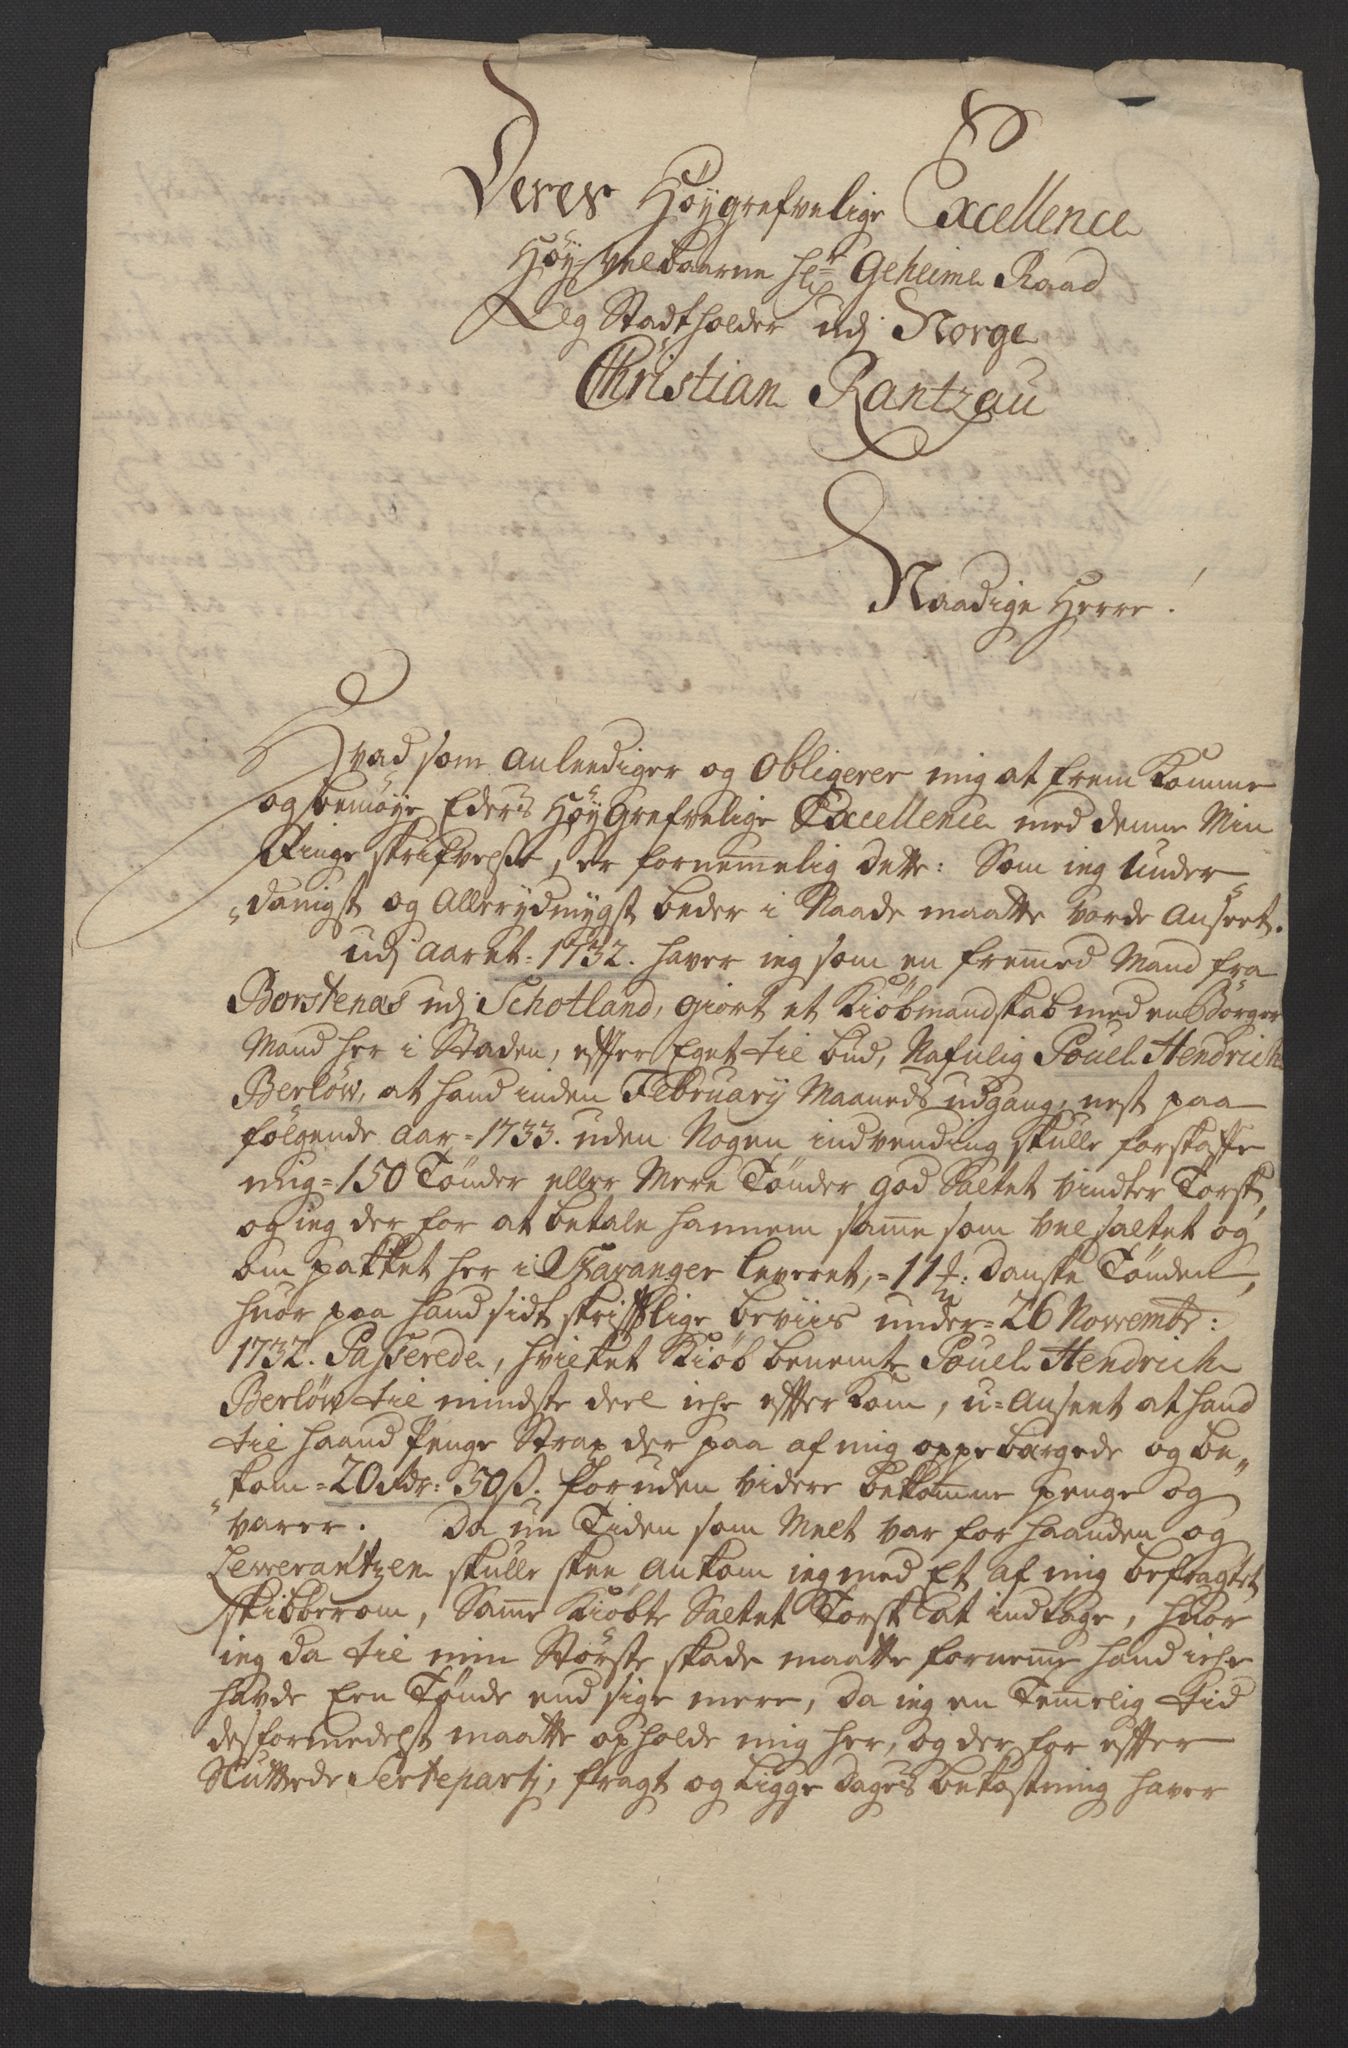 Deres Höygrefvelige Excellence
Höy-Velbaarne Hr Geheime Raad
Og Stadtholder udj Norge
Christian Rantzau
Naadige Herre!
Hvad som anleediger og Obligerer mig at frem komme
og bemöye Eders HöyGrefvelige Excellence med denne Min
Ringe skrifvelse, er fornemmelig dette: Som ieg Under
danigst og Allerydmygst beder i Naade maatte vorde anseet.
udj aaret = 1732. haver ieg som en fremmed Mand fra
Borstenæs udj Schotland, giort et Kiöbmandskab med en Börger
Mand her i Staden, effter Eget tilbud, Nafnlig Pouel Hendrich
Berlöw, at hand inden February Maaneds udgang, nest paa
fölgende aar = 1733. uden Nogen indvending skulle forskaffe
mig = 150 Tönder eller Mere Tönder god Saltet Vindter Torsk,
og ieg der for at betale hannem samme som vel saltet og
om pakket her i Stavanger leveret, = 11 danske Tönden,
huor paa hand sidt skrifftlige beviis under = 26 Novembr:
1732. Passerede, hvilket Kiöb benemte Pouel Hendrich
Berlöw til mindste deel iche effterkom, u=anseet at hand
til haand Penge Strax der paa af mig oppebærgede og be
kom = 20 Rdr: 50 ß. foruden videre bekomne penge og
varer. Da nu Tiden som Melt var for haanden og
Lewerantzen skulle skee ankom ieg med Et af mig befragtet
skibberom, Samme Kiöbte Saltet Torsk at indtage, huor
ieg da til min Störste skade maatte fornemme hand iche
havde Een Tönde end sige mere, da ieg en Temmelig tid
desformedelst maatte opholde mig her, og der for effter
Sluttede Serteparti, fragt og Ligge dages bekostning haver